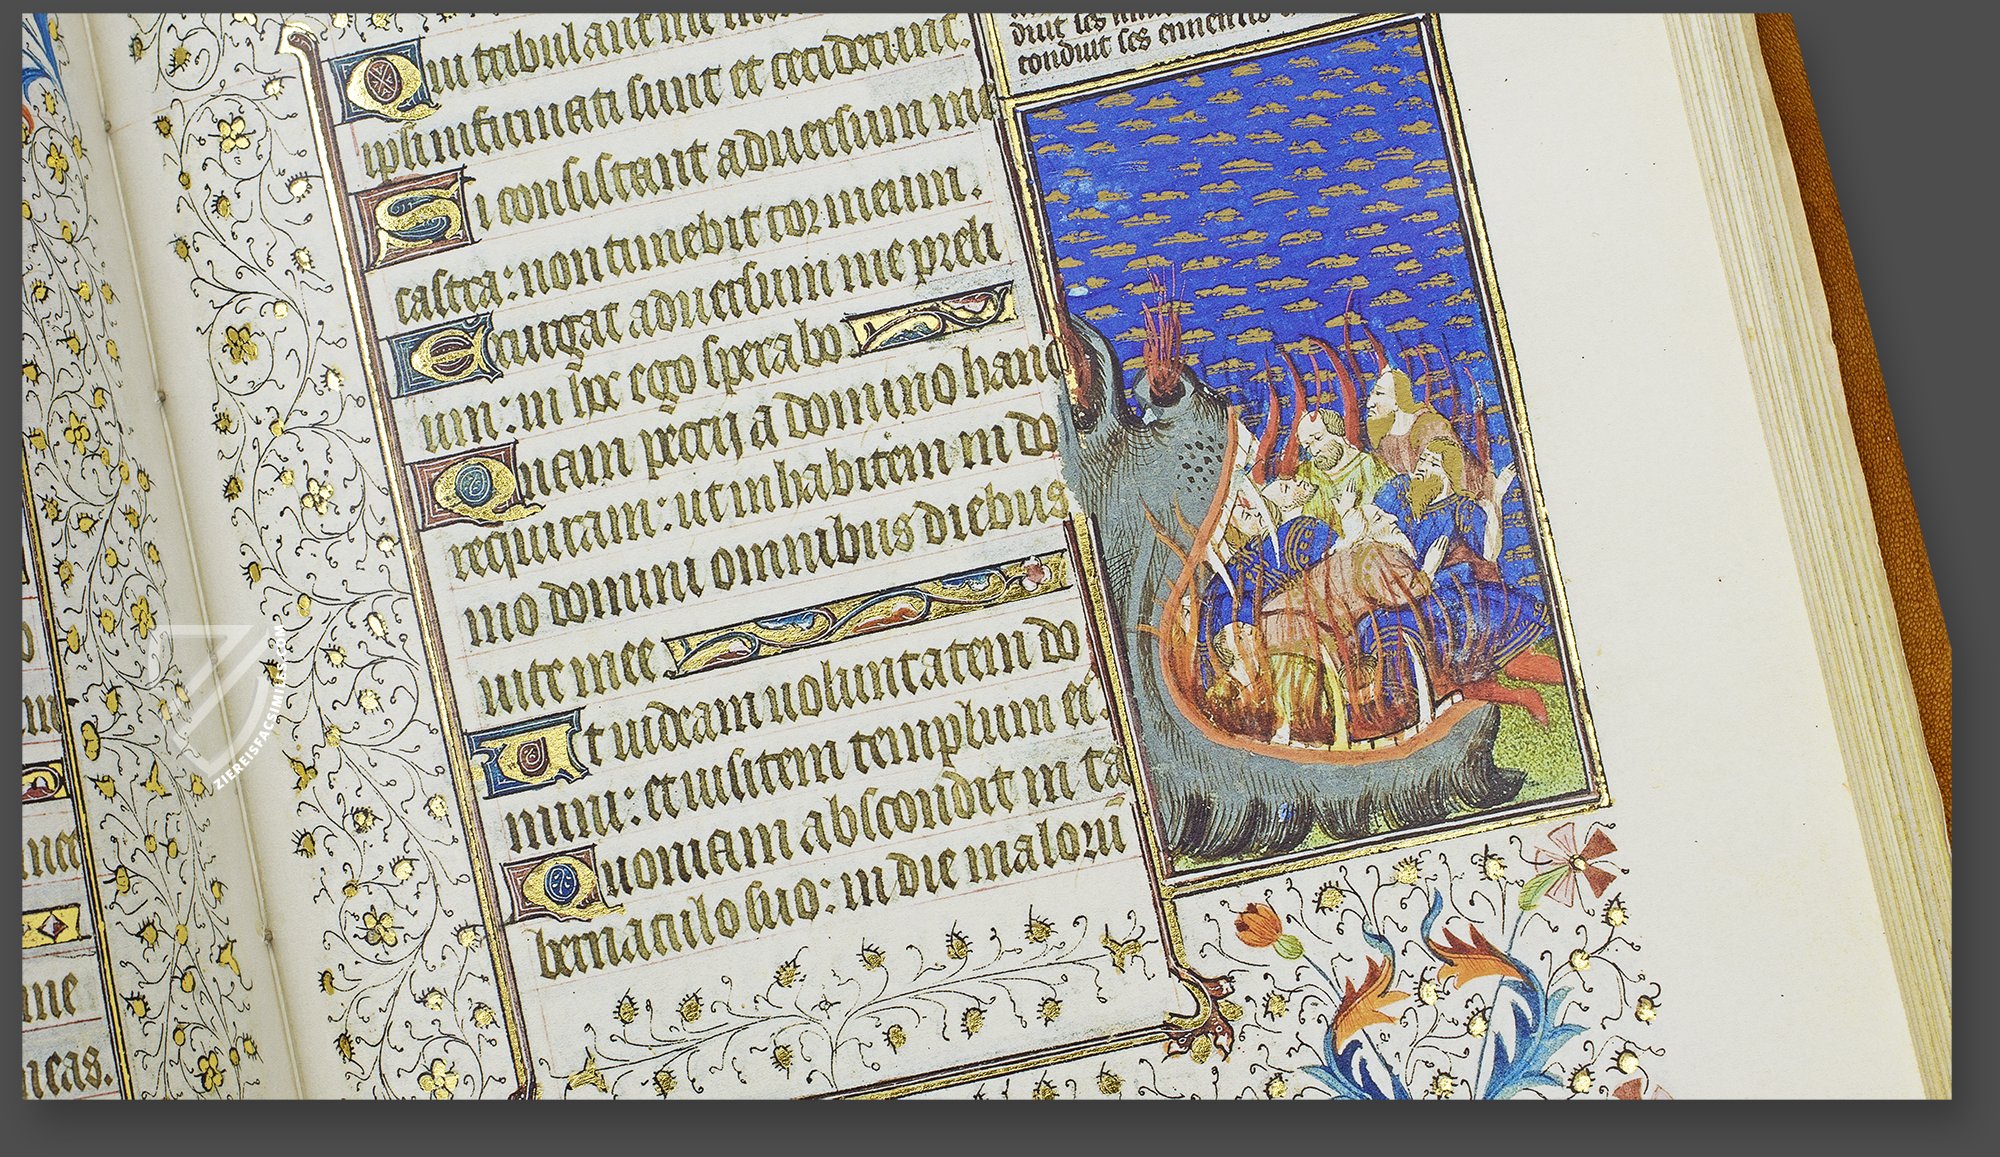 Qui tribulant me
ipsi infirmati sunt et ceciderunt.
Si consistant adversum me
castra: non timebit cor meum.
Exurgat adversum me preli
um: in hoc ego sperabo
Unam petii a domino hanc
requiram: ut inhabitem in do
mo domini omnibus diebus
vite mee
Ut videam voluntatem do
mini: et visitem templum ei.
Quoniam abscondit in ta
bernaculo suo: in die malorū
duit ses
conduit ses ennemis
neas.
ZIEREISFACSIMILES.COM